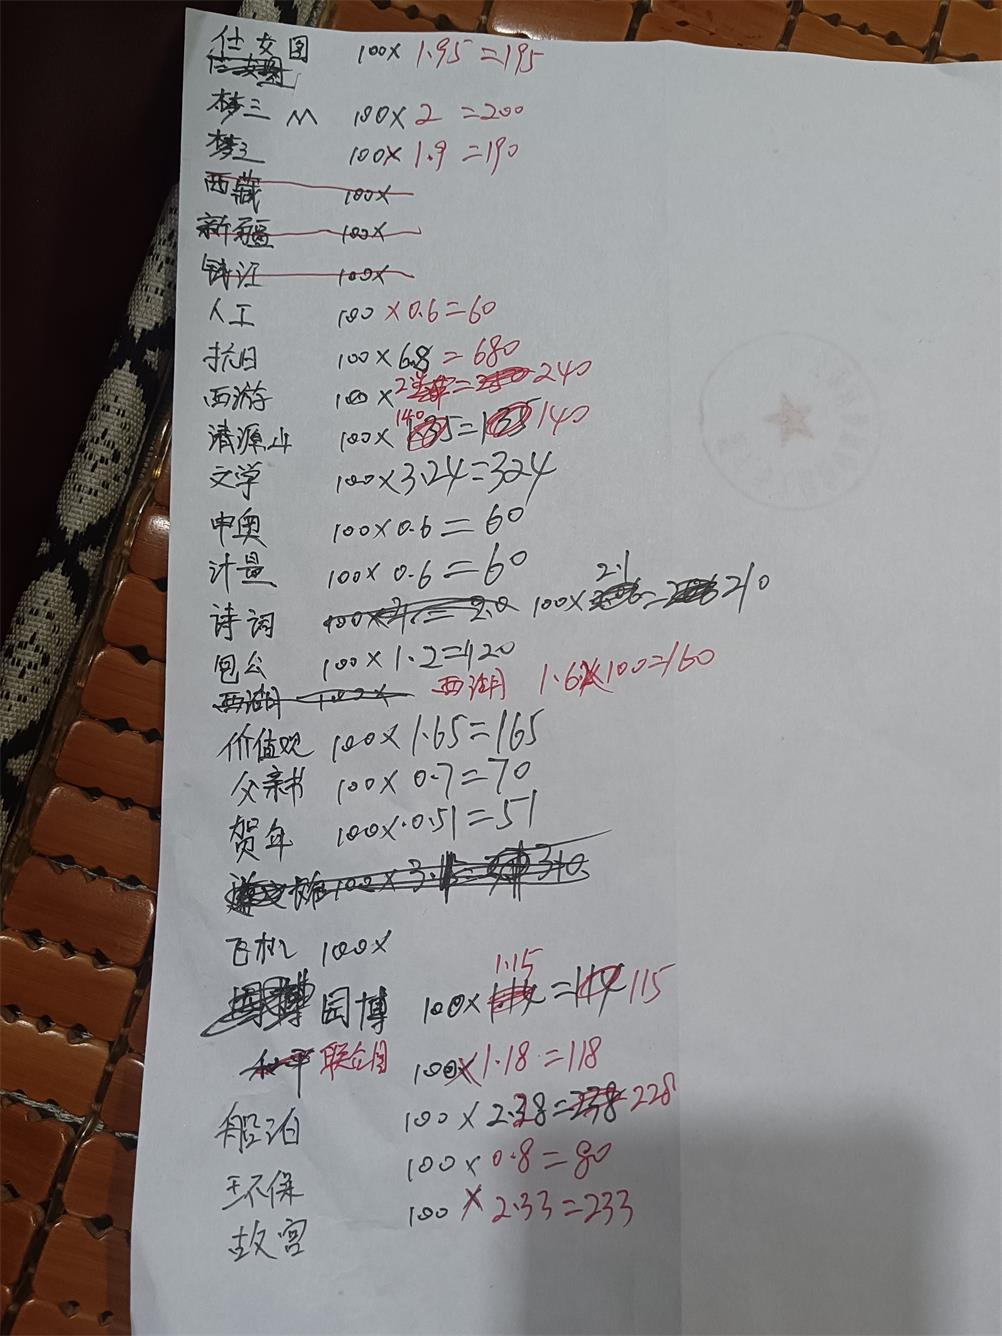 仕女图 100×1.95=195
仕女图
梦三 M 100×2=200
梦三 100×1.9=190
西藏 100×
新疆 100×
钱江 100×
人工 100×0.6=60
抗日 100×6.8=680
西游 100× 240
清源山 100× 140 140
文学 100×3.24=324
申奥 100×0.6=60
计量 100×0.6=60
诗词 100×2.1=210
包公 100×1.2=120
西湖 100× 西湖 1.6×100=160
价值观 100×1.65=165
父亲书 100×0.7=70
贺年 100×0.51=51
飞机 100×
园博 100×1.15=115
和平 联合国 100×1.18=118
船泊 100×2.28=228
环保 100×0.8=80
故宫 100×2.33=233